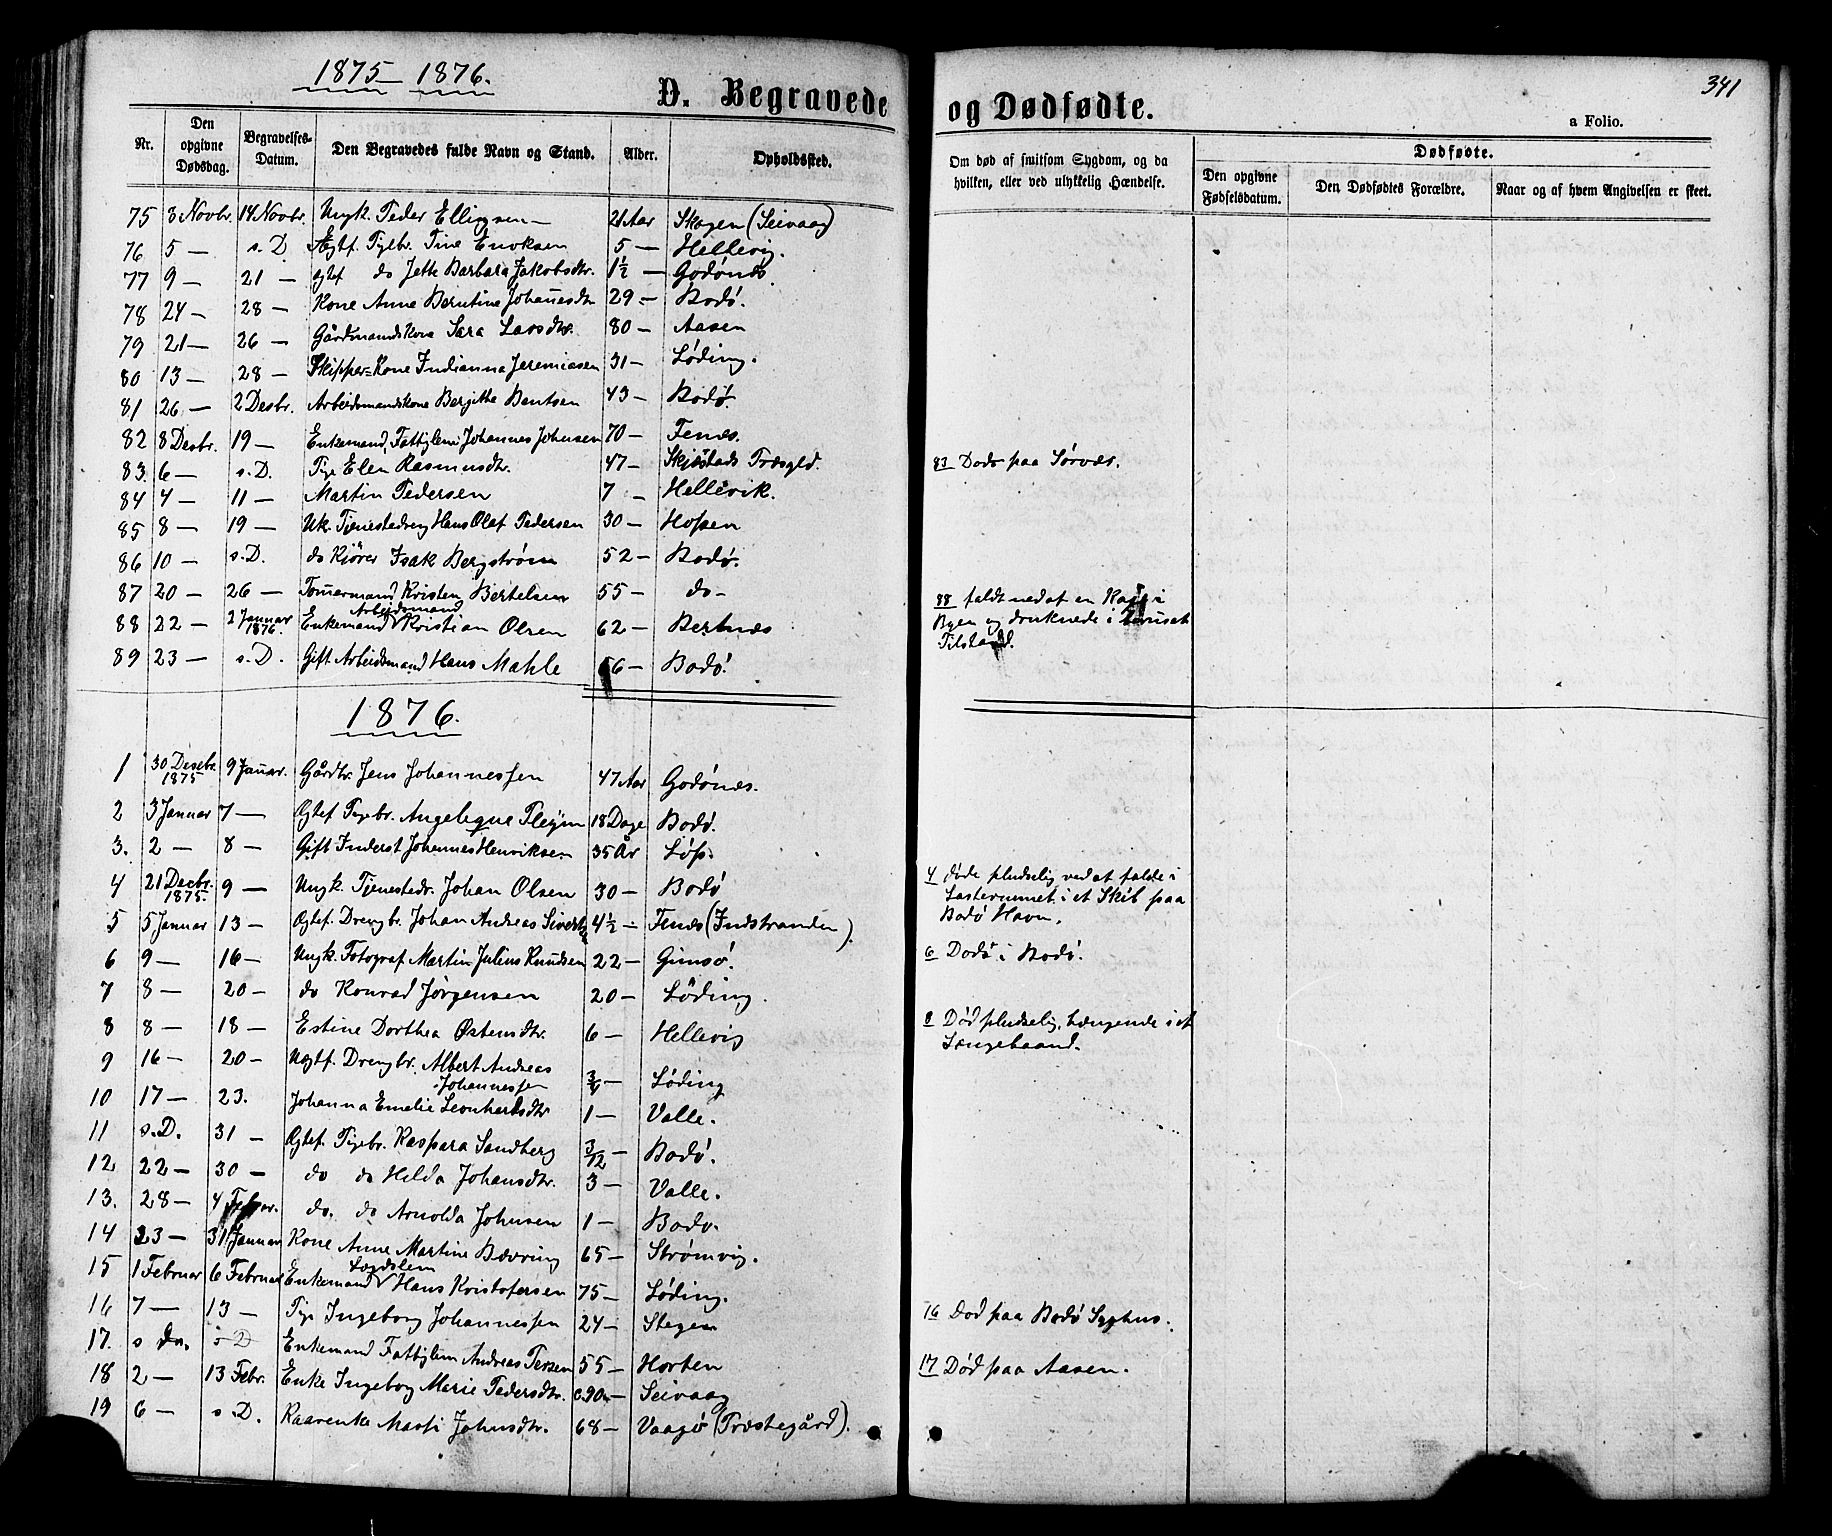 1875 — 1876.
D. Begravede og Dødfødte.
341
a Folio.
Nr. | Den opgivne Dødsdag. | Begravelses-Datum. | Den Begravedes fulde Navn og Stand. | Alder. | Opholdssted.
Om død af smitsom Sygdom, og da hvilken, eller ved ulykkelig Hændelse. | Dødfødte. | Den opgivne Fødselsdatum. | Den Dødfødtes Forældre. | Naar og af hvem Angivelsen er skeet.
75 3 Novbr. 14 Novbr. Ungk. Peder Ellingsen 21 Aar Skagen (Seivaag)
76 5 — s. D Ægtf. Pigebr. Tine Enoksen 5 — Hellevig.
77 9 — 21 — Ægtef do Jette Barbara Jakobsdtr. 1½ — Godønes
78 24 — 28 — Kone Anne Berntine Johannesdtr 29 — Bodø.
79 21 — 26 — Gårdmandskone Sara Larsdtr. 80 — Aasen
80 13 — 28 — Skipper-Kone Indianna Jeremiasen 31 — Løding.
81 26 — 2 Desbr. Arbeidsmandskone Bergitte Bentsen 43 — Bodø.
82 8 Desbr. 19 — Enkemand, Fattiglem Johannes Johnsen 70 — Fenes.
83. 6 — s. D. Pige Elen Rasmusdtr. 47 — Skjæstads Præsgld. 83 Døde paa Sørvær.
84 4 — 11 — Martin Pedersen 7 — Hellevik.
85 8 — 19 — Uk. Tjenestedreng Hans Olaf Pedersen 30 — Hopen
86 10 — s. D. do Kjører Isak Bergstrøm 52 — Bodø.
87 20 — 26 — Tømermand Kristen Bertelsen 55 — do —
88 22 — 2 Januar 1876. Enkemand Arbeidsmand Kristian Olsen 62 — Bertnes 88 faldt ned af en Kai i Byen og druknede i beruset Tilstand.
89 23 — s. D. Gift Arbeidsmand Hans Mahle 56 — Bodø.
1876.
1 30 Desebr. 1875 9 Januar. Gårdbr. Jens Johannessen 47 Aar Godønes.
2 3 Januar 7 — Ægtef Pigebr. Angeleque Pleym 18 Dage Bodø.
3. 2 — 8 — Gift Inderst Johannes Henriksen 35 År Løp.
4 21 Decbr. 1875. 9 — Ungk. Tjenestedr. Johan Olsen 30 — Bodø 4 døde pludselig ved at falde i Lasterummet i et Skib paa Bodø Havn.
5 5 Januar 13 — Ægtef. Drengbr. Johan Andreas Sivertsen 4½ — Fenes (Indstranden).
6 9 — 16 — Ungk. Fotograf Martin Julius Knudsen 22 — Gimsø. 6 Døde i Bodø.
7 8 — 20 — do Konrad Jørgensen 20 — Løding.
8 8 — 18 — Estine Dorthea Østensdtr. 6 — Hellevig 8 Død pludselig, hængende i et Sængebaand.
9 16 — 20 — Uægtf. Drengbr. Albert Andreas Johannessen ¾ — Løding
10 17 — 23. Johanna Emelie Leonhertsdtr 1 — Valle.
11 s. D. 31 — Ægtef. Pigebr. Kaspara Sandberg 3/12 — Bodø.
12 22 — 30 — do do Hilda Johansdtr. 3 — Valle.
13. 28 — 4 Febuar. do. do Arnolda Johnsen 1 — Bodø.
14 23 — 31 Januar Kone Anne Martine Bævring 65 — Strømvig.
15 1 Februar 6 Februar Enkemand Lægdslem Hans Kristofersen 75 — Løding.
16 7 — 13 — Pige Ingeborg Johannessen 24 — Stegen 16 Død paa Bodø Syghus.
17. s do. s D Enkemand Fattiglem Andreas Persen 55 — Horten 17 Død paa Aasen.
18 2 — 13 Febr. Enke Ingeborg Marie Pedersdtr. c. 90 — Seivaag
19 6 — s. D. Kaarenke Massi Johnsdtr. 68 — Vaagø (Præstegård).